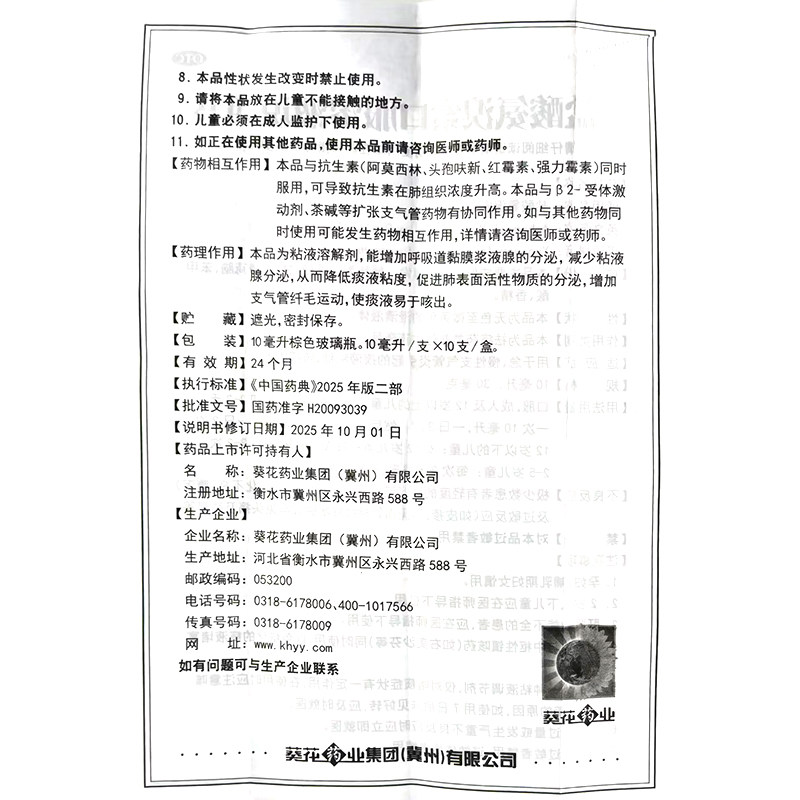 8. 本品性状发生改变时禁止使用。
9. 请将本品放在儿童不能接触的地方。
10. 儿童必须在成人监护下使用。
11. 如正在使用其他药品,使用本品前请咨询医师或药师。
【药物相互作用】本品与抗生素(阿莫西林、头孢呋新、红霉素、强力霉素)同时
服用,可导致抗生素在肺组织浓度升高。本品与β2-受体激
动剂、茶碱等扩张支气管药物有协同作用。如与其他药物同
时使用可能发生药物相互作用,详情请咨询医师或药师。
【药理作用】本品为粘液溶解剂,能增加呼吸道黏膜浆液腺的分泌,减少粘液
腺分泌,从而降低痰液粘度,促进肺表面活性物质的分泌,增加
支气管纤毛运动,使痰液易于咳出。
【贮 藏】遮光,密封保存。
【包 装】10毫升棕色玻璃瓶。10毫升/支×10支/盒。
【有 效 期】24个月
【执行标准】《中国药典》2025年版二部
【批准文号】国药准字H20093039
【说明书修订日期】2025年10月01日
【药品上市许可持有人】
名 称:葵花药业集团(冀州)有限公司
注册地址:衡水市冀州区永兴西路588号
【生产企业】
企业名称:葵花药业集团(冀州)有限公司
生产地址:河北省衡水市冀州区永兴西路588号
邮政编码:053200
电话号码:0318-6178006、400-1017566
传真号码:0318-6178009
网 址:www.khyy.com
如有问题可与生产企业联系
葵花药业
葵花药业集团(冀州)有限公司